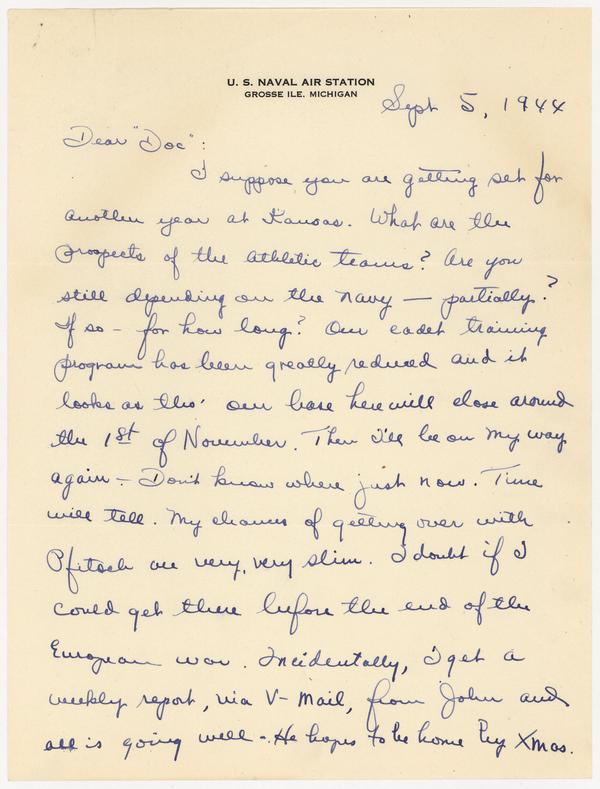 U. S. NAVAL AIR STATION
GROSSE ILE, MICHIGAN
Sept 5, 1944
Dear "Doc":
I suppose you are getting set for
another year at Kansas. What are the
prospects of the athletic teams? Are you
still depending on the navy — partially?
If so - for how long? Our cadet training
program has been greatly reduced and it
looks as tho' our base here will close around
the 1st of November. Then I'll be on my way
again - Don't know where just now. Time
will tell. My chances of getting over with
Pfitsch are very, very slim. I doubt if I
could get there before the end of the
European war. Incidentally, I get a
weekly report, via V-Mail, from John and
all is going well - He hopes to be home by Xmas.